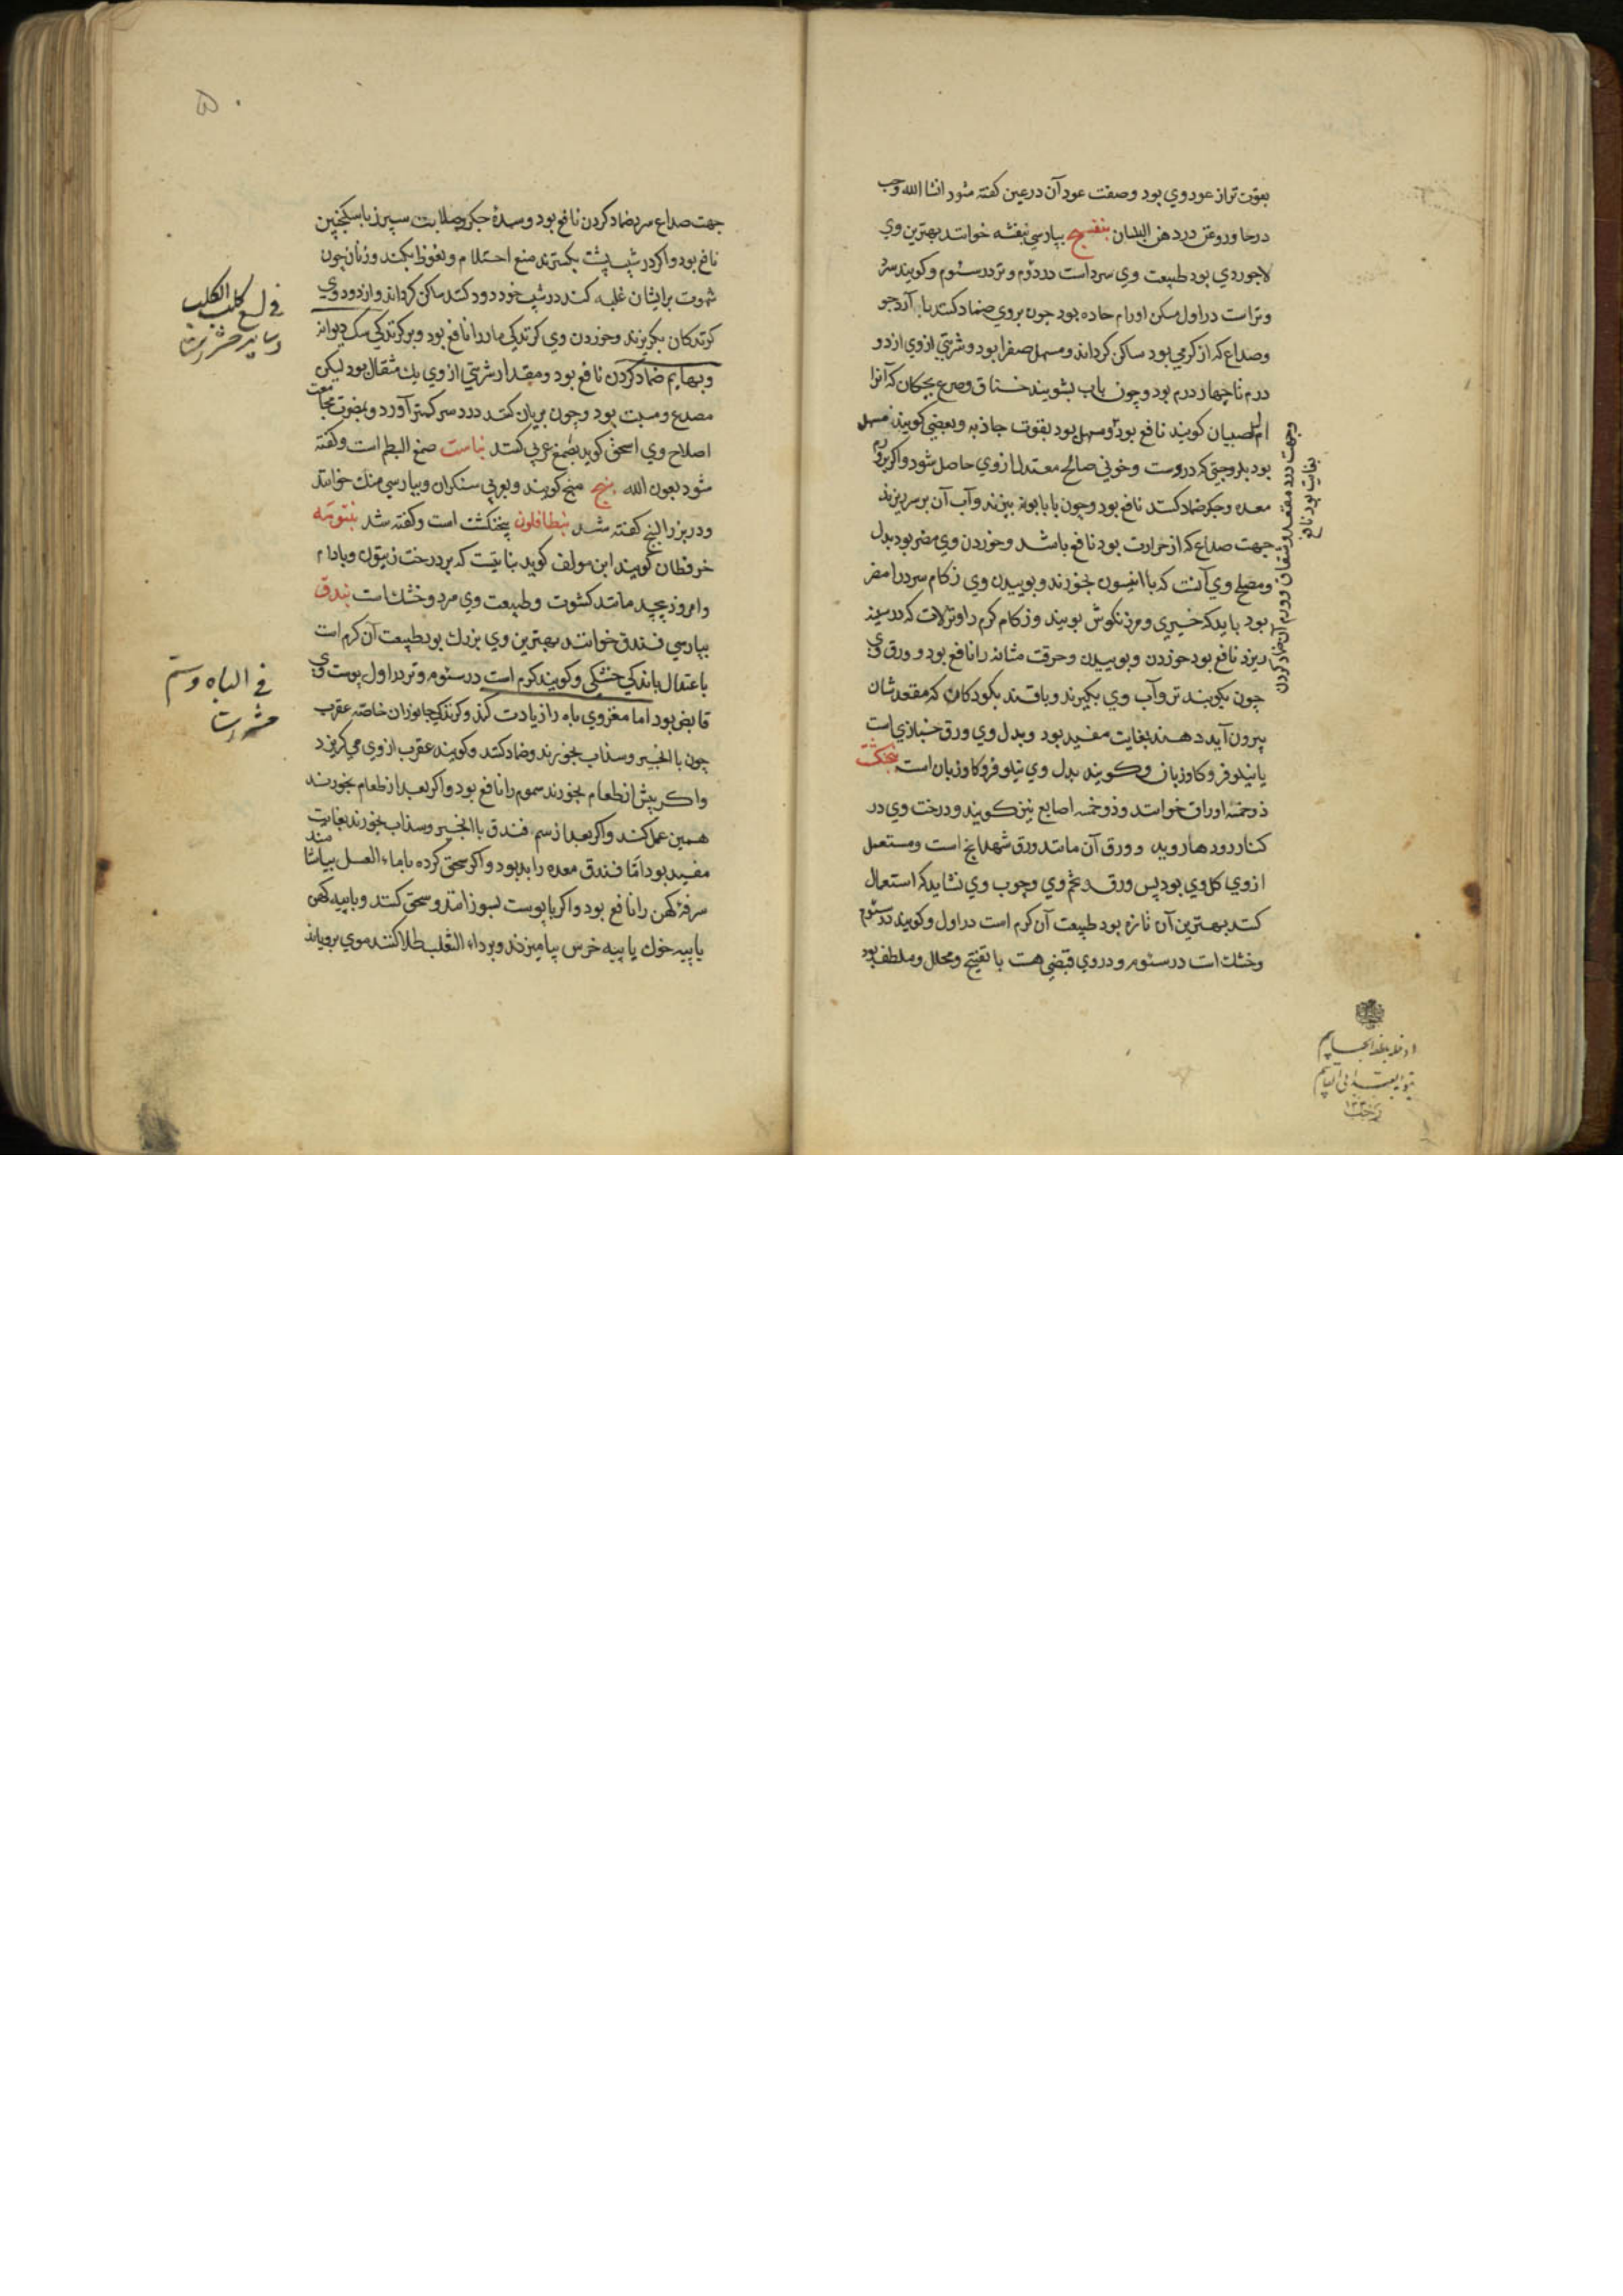 بقوت تر از عود وي بود وصفت عود آن در عين كفته شود انشا الله وحب
در حا وروغن در دهن البلسان بنفسج بپارسي بنفشه خوانند بهترين وي
لاجوردي بود طبيعت وي سرد است در دوم وتر در سئوم وكويند سرد
وتر است در اول مسكن اورام حاده بود چون بروي ضماد كنند با آرد جو
وصداع كه از كرمي بود ساكن كرداند ومسهل صفرا بود وشربتي از وي از دو
درم تا چهار درم بود وچون باب بشويند خناق وصرع بچكان كه آنرا
ام الصبيان كويند نافع بود ومسهل بود بقوت جاذبه وبعضي كويند مسهل
بود بلزوجتي كه دروست وخوني صالح معتدل از وي حاصل شود واكر بر ورم
معده وجكر ضماد كنند نافع بود وچون با بابونه بپزند وآب آن بر سر ريزند
جهت صداع كه از حرارت بود نافع باشد وخوردن وي مضر بود بدل
ومصلح وي آنست كه با انيسون بخورند وبوييدن وي زكام سرد را مضر
بود بايد كه خيري ومرزنكوش بويند وزكام كرم را ونزلات كه در سينه
ريزد نافع بود خوردن وبوييدن وحرقت مثانه را نافع بود وورق وي
چون بكوبند تر وآب وي بكيرند وباقند بكودكان كه مقعدشان
بيرون آيد دهند بغايت مفيد بود وبدل وي ورق خبازي است
يا نيلوفر وكاوزبان وكويند بدل وي نيلوفر وكاوزبان است پنجنكشت
ذو خمسة اوراق خوانند وذو خمسه اصابع نيز كويند ودرخت وي در
كنار رودها رويد وورق آن مانند ورق شهدانج است ومستعمل
از وي كل وي بود پس ورق وتخم وي وچوب وي نشايد كه استعمال
كنند بهترين آن تازه بود طبيعت آن كرم است در اول وكويند در سئوم
وخشك است در سئوم ودر وي قبضي هست با تفتيح ومحلل وملطف بود
وجهت درد مقعد وشقاق وورم آن ضماد كردن
بغايت بود نافع
جهت صداع سرد ضماد كردن نافع بود وسدهٔ جكر وصلابت سپرز با سكنجبين
نافع بود واكر در شيب پشت بكسترند منع احتلام ونعوظ بكند وزنان چون
شهوت برايشان غلبه كند در شيب خود دود كنند ساكن كرداند واز دود وي
كزندكان بكريزند وخوردن وي كزندكي مار را نافع بود وبر كزندكي سك ديوانه
وبهايم ضماد كردن نافع بود ومقدار شربتي از وي يك مثقال بود ليكن
مصدع ومسبت بود وچون بريان كنند درد سر كمتر آورد ومضرت مجامعت
اصلاح وي اسحق كويد بصمغ عربي كنند بناست صمغ البطم است وكفته
شود بعون الله بنج منج كويند وبعربي سنكران وبپارسي منك خوانند
ودر بزر البنج كفته شد بنطافلون پنجنكشت است وكفته شد بنتومه
خرفطان كويند ابن مولف كويد بناتيست كه بر درخت زيتون وبادام
وامرود پيچد مانند كشوث وطبيعت وي سرد وخشك است بندق
بپارسي فندق خوانند بهترين وي بزرك بود طبيعت آن كرم است
باعتدال باندكي خشكي وكويند كرم است در سئوم وتر در اول پوست وي
قابض بود اما مغز وي باه را زيادت كند وكزندكي جانوران خاصه عقرب
چون با انجير وسداب بخورند وضماد كنند وكويند عقرب از وي مي كريزد
واكر پيش از طعام بخورند سموم را نافع بود واكر بعد از طعام بخورند
همين عمل كند واكر بعد از سم فندق با انجير وسداب بخورند بغايت
مفيد بود اما فندق معده را بد بود واكر سحق كرده با ماء العسل بياشامند
سرفهٔ كهن را نافع بود واكر با پوست بسوزانند وسحق كنند وبا پيه كهن
يا پيه خوك يا پيه خرس بياميزند وبر داء الثعلب طلا كنند موي بروياند
في لسع كلب الكلب
وساير حشرات
في الباه وسم
حشرات